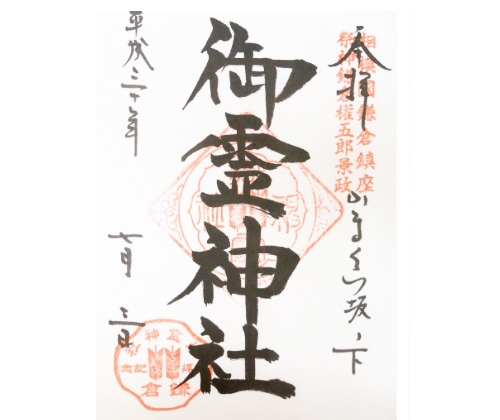 奉拝
相模國鎌倉鎮座
祭神鎌倉權五郎景政
かまくら坂ノ下
御霊神社
平成三十年
七月
三日
鎌倉